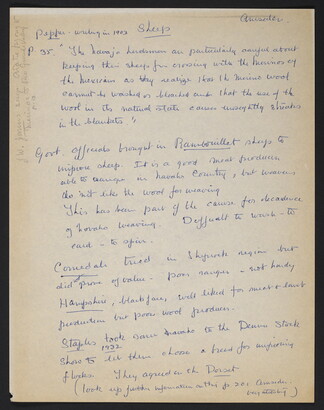 Amsden
Pepper - writing in 1903 Sheep
P. 35 "The Navajo herdsmen are particularly careful about
keeping their sheep from crossing with the merinos of
the Mexicans as they realize that the Merino wool
cannot be washed or bleached and that the use of the
wool in its natural state causes unsightly streaks
in the blankets."
Govt. officials brought in Rambouillet sheep to
improve sheep. It is a good meat producer
able to range in Navaho Country, but weavers
do not like the wool for weaving
This has been part of the cause for decadence
of Navaho weaving. Difficult to wash - to
card - to spin.
Corriedale tried in Shiprock region but
did prove of value - poor ranges - not hardy
Hampshire, blackface, well liked for meat & lamb
production but poor wool producer.
Staples took some Navaho to the Denver Stock
1932
Show to let them chose a breed for improving
flocks. They agreed on the Dorset
(look up further information on this p. 201 Amsden